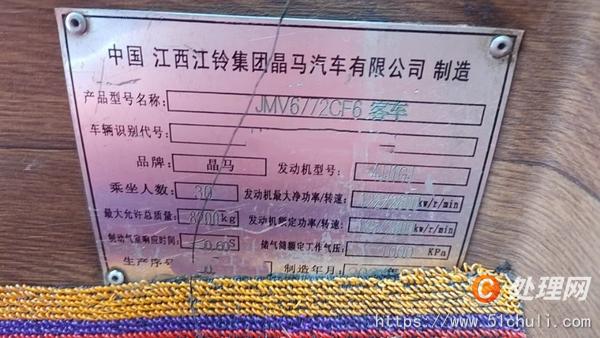 中国 江西江铃集团晶马汽车有限公司 制造
产品型号名称: JMV6772CF6 客车
车辆识别代号:
品牌: 晶马 发动机型号:
乘坐人数: 30 发动机最大净功率/转速: kw/r/min
最大允许总质量: 8200kg 发动机额定功率/转速: kw/r/min
制动气室响应时间: 0.60S 储气筒额定工作气压: KPa
生产序号 制造年月
C 处理网
https://www.51chuli.com/